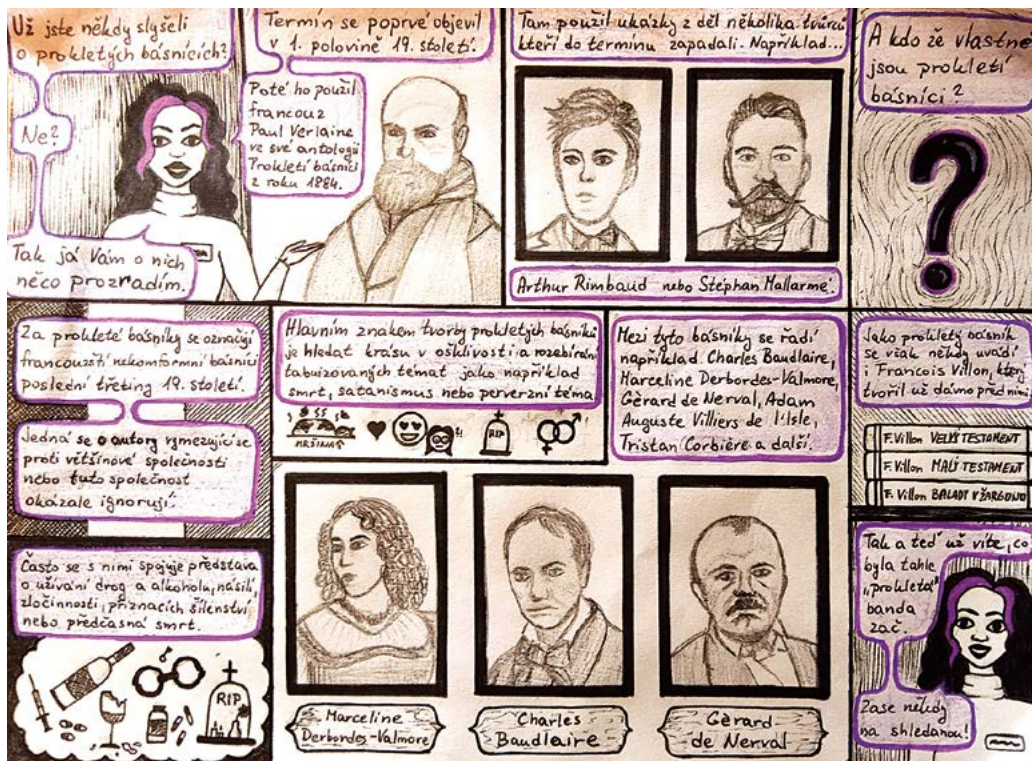 Už jste někdy slyšeli
o prokletých básnících?
Ne?
Tak já Vám o nich
něco prozradím.
Termín se poprvé objevil
v 1. polovině 19. století.
Poté ho použil
francouz
Paul Verlaine
ve své antologii
Prokletí básníci
z roku 1884.
Tam použil ukázky z děl několika tvůrců
kteří do termínu zapadali. Například...
Arthur Rimbaud nebo Stéphan Mallarmé.
A kdo že vlastně
jsou prokletí
básníci?
Za prokleté básníky se označují
francouzští nekomformní básníci
poslední třetiny 19. století.
Jedná se o autory vymezující se
proti většinové společnosti
nebo tuto společnost
okázale ignorují.
Často se s nimi spojuje představa
o užívání drog a alkoholu, násilí,
zločinnosti, příznacích šílenství
nebo předčasná smrt.
RIP
Hlavním znakem tvorby prokletých básníků
je hledat krásu v ošklivosti a rozebírání
tabuizovaných témat jako například
smrt, satanismus nebo perverzní téma
MRŠINA
RIP
Mezi tyto básníky se řadí
například Charles Baudlaire,
Marceline Derbordes-Valmore,
Gèrard de Nerval, Adam
Auguste Villiers de l'Isle,
Tristan Corbière a další.
Marceline
Derbordes-Valmore
Charles
Baudlaire
Gèrard
de Nerval
Jako prokletý básník
se však někdy uvádí
i Francois Villon, který
tvořil už dávno před nimi
F. Villon VELKÝ TESTAMENT
F. Villon MALÝ TESTAMENT
F. Villon BALADY V ŽARGONU
Tak a teď už víte, co
byla tahle
„prokletá"
banda
zač.
Zase někdy
na shledanou!